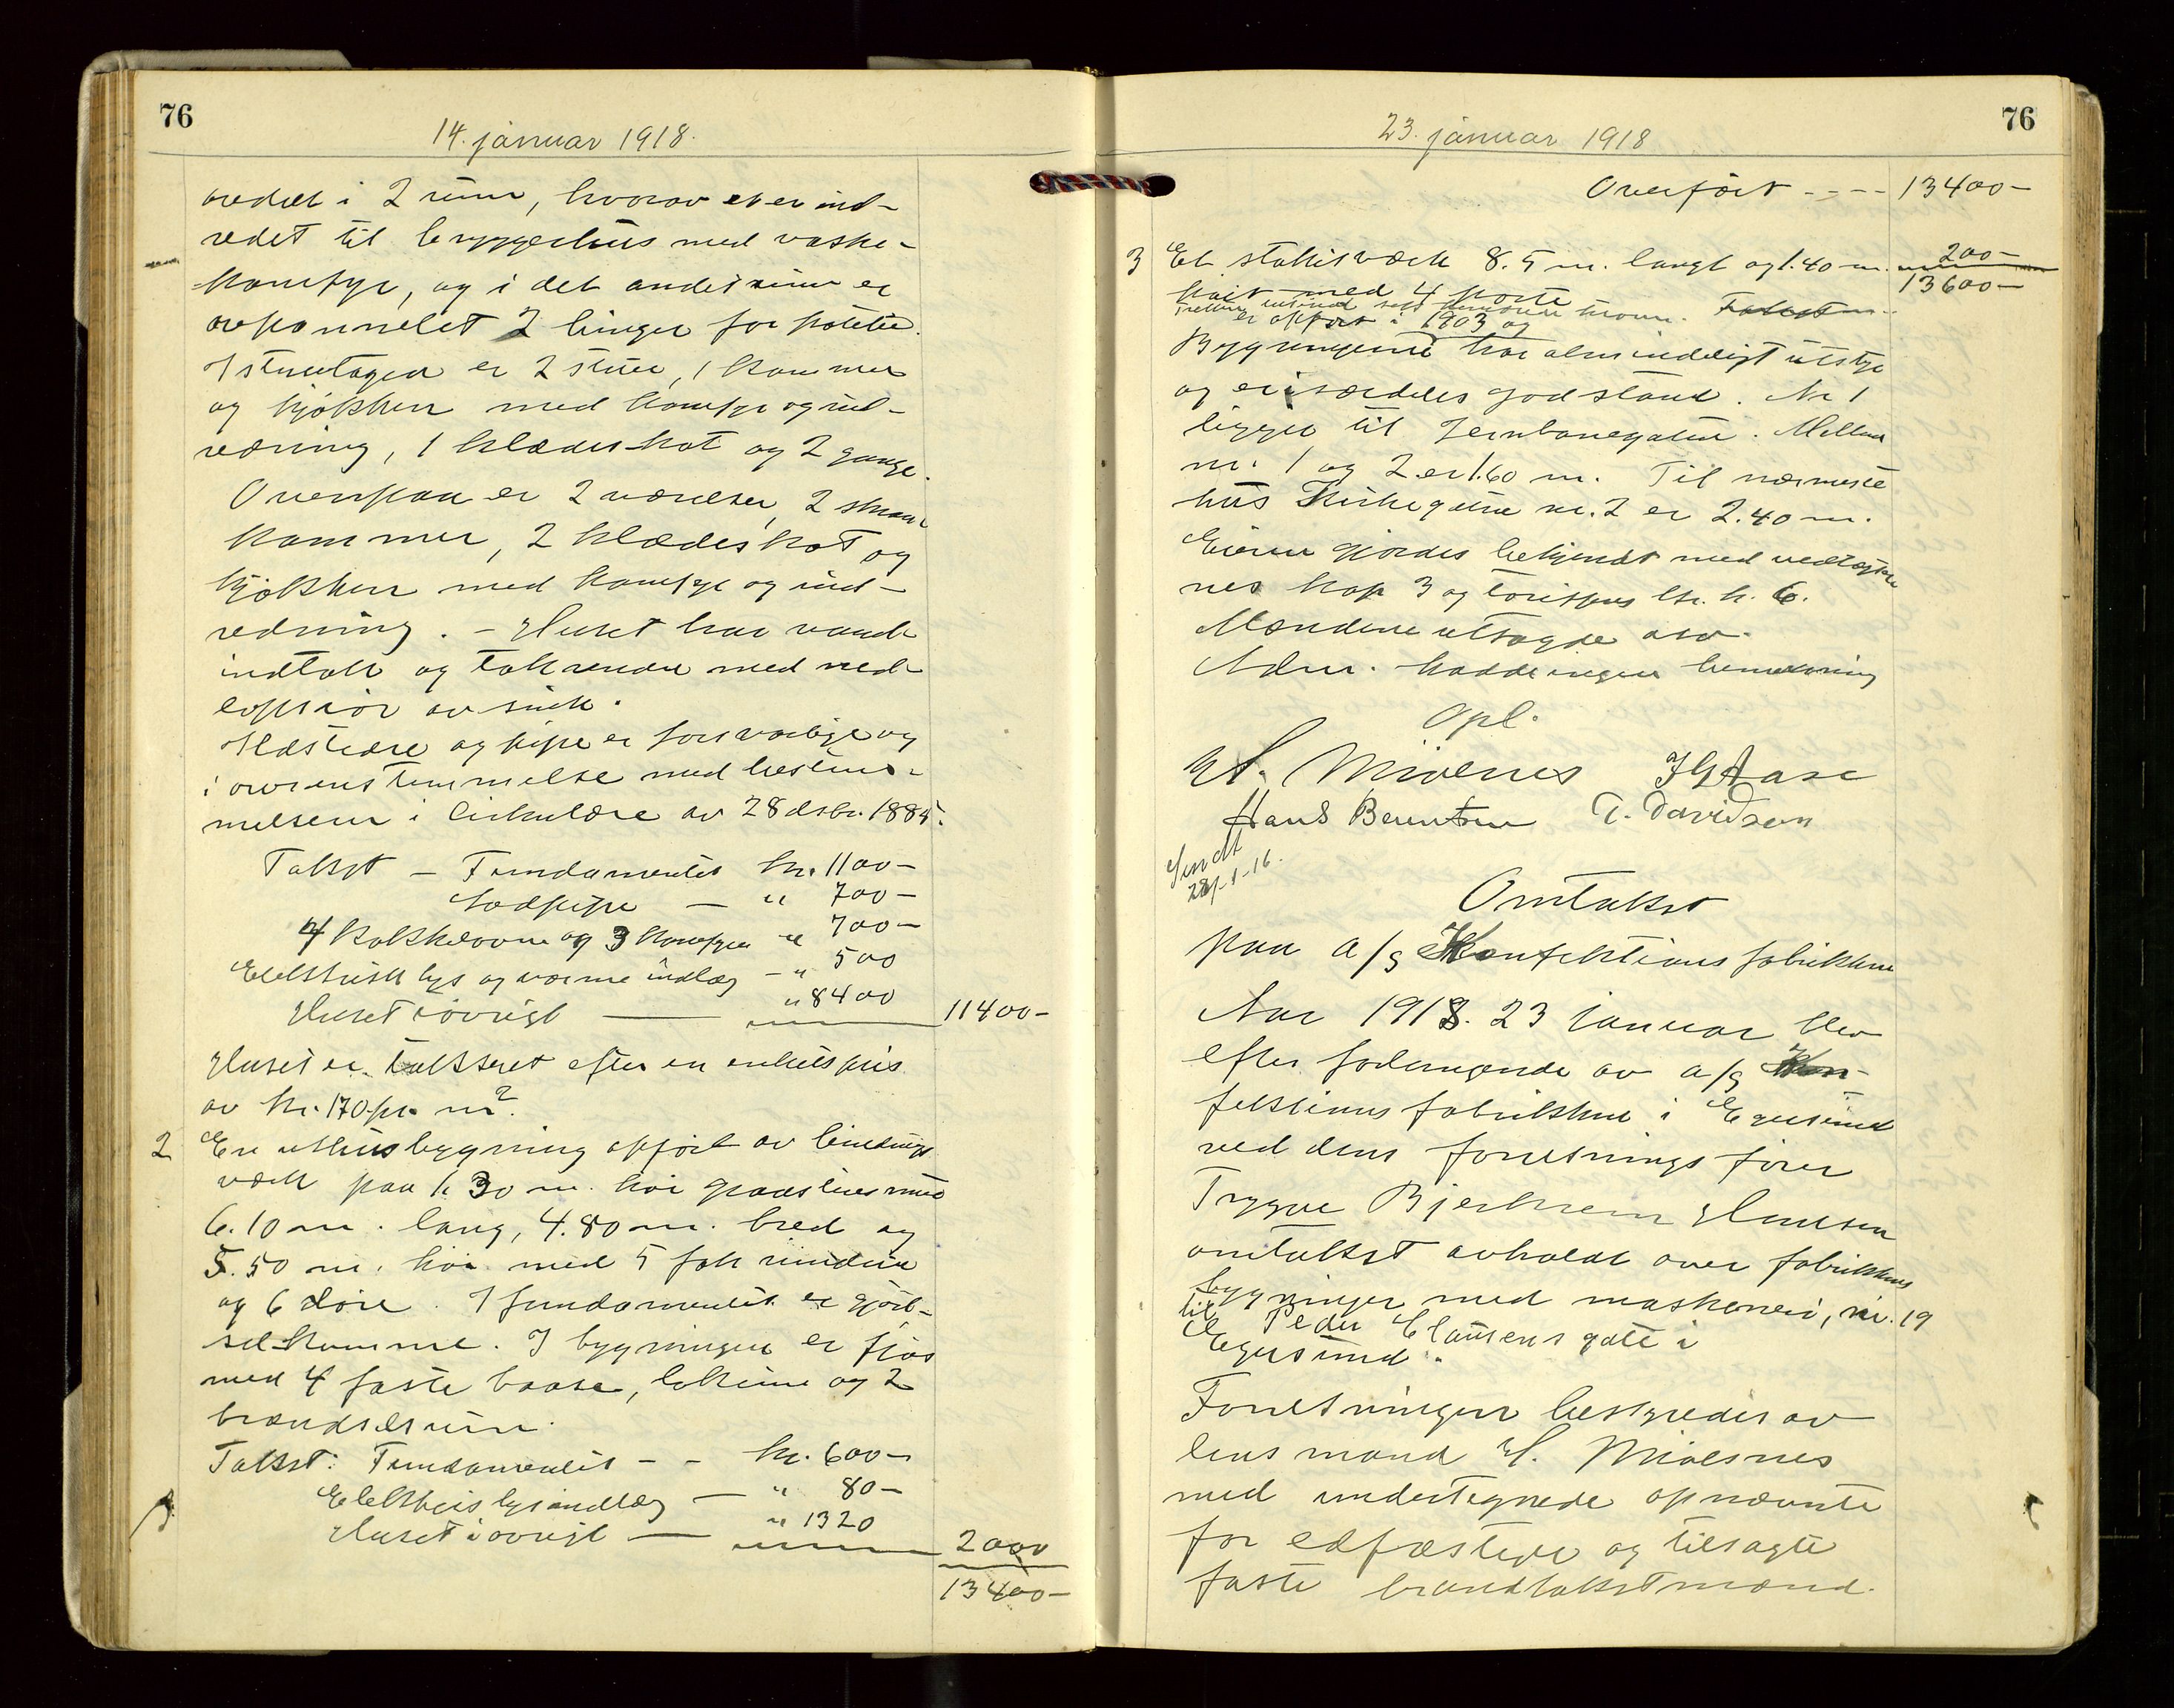 76
14. januar 1918.
avdelt i 2 rum, hvorav et er ind-
redet til bryggerhus med vaske-
komfyr, og i det andet rum er
avpannelet 2 binger for poteter.
I stueetagen er 2 stuer, 1 kammer
og kjøkken med komfyr og ind-
redning, 1 klædeskot og 2 gange.
Ovenpaa er 2 værelser, 2 skraa-
kammer, 2 klædeskot og
kjøkken med komfyr og ind-
redning. – Huset har vand-
indtak og takrender med ned-
løpsrør av sink.
Ildstedre og pipe er forsvarlige og
i overenstemmelse med bestem-
melsene i Cirkulære av 28 dsbr. 1885.
Takst – Fundamentet kr. 1100–
Sodpipe – " 700–
4 kakkelovne og 3 komfyrer " 700–
Elektrisk lys og varme indlæg – " 500
Huset iøvrigt – " 8400 11400–
Huset er takseret efter en enhetspris
av kr. 170 pr. m².
2 En uthusbygning opført av bindings-
værk paa 1.30 m. høi graastensmur
6.10 m. lang, 4.80 m. bred og
5.50 m. høi med 5 fak vinduer
og 6 døre. I fundamentet er gjød-
selkumme. I bygningen er fjøs
med 4 faste baase, lokrum og 2
brændselsrum.
Takst: Fundamentet – – kr. 600–
Elektrisk lysindlæg – " 80–
Huset iøvrigt – " 1320 2000
13400–
76
23. januar 1918
Overført – – – – 13400–
3 Et stakitværk 8.5 m. langt og 1.40 m. 200–
høit med 4 porte 13600–
er opført i 1903 og
Bygningerne har almindeligt utstyr
og er i særdeles god stand. Nr 1
ligger til Jernbanegaten. Mellem
nr. 1 og 2 er 1.60 m. Til nærmeste
hus Kirkegaten nr. 2 er 2.40 m.
Eieren gjordes bekjendt med vedtægter-
nes kap 3 og
Mændene utsagde
Adm. hadde ingen bemerkning
Opl.
H. Mivesnes
Hans Berentsen T. Davidsen
Sendt
Omtakst
paa a/s Konfektionsfabrikken
Aar 1918. 23 januar blev
efter forlangende av a/s Kon-
fektionsfabrikken i Egersund
ved dens forretningsfører
Trygve Bjerkreim Hansen
omtakst avholdt over fabrikkens
bygninger med maskineri, nr. 19
til Peder Clausens gate i
Egersund.
Forretningen bestyredes av
lensmand H. Mivesnes
med undertegnede opnævnte
for edfæstede og tilsagte
faste brandtakstmænd.